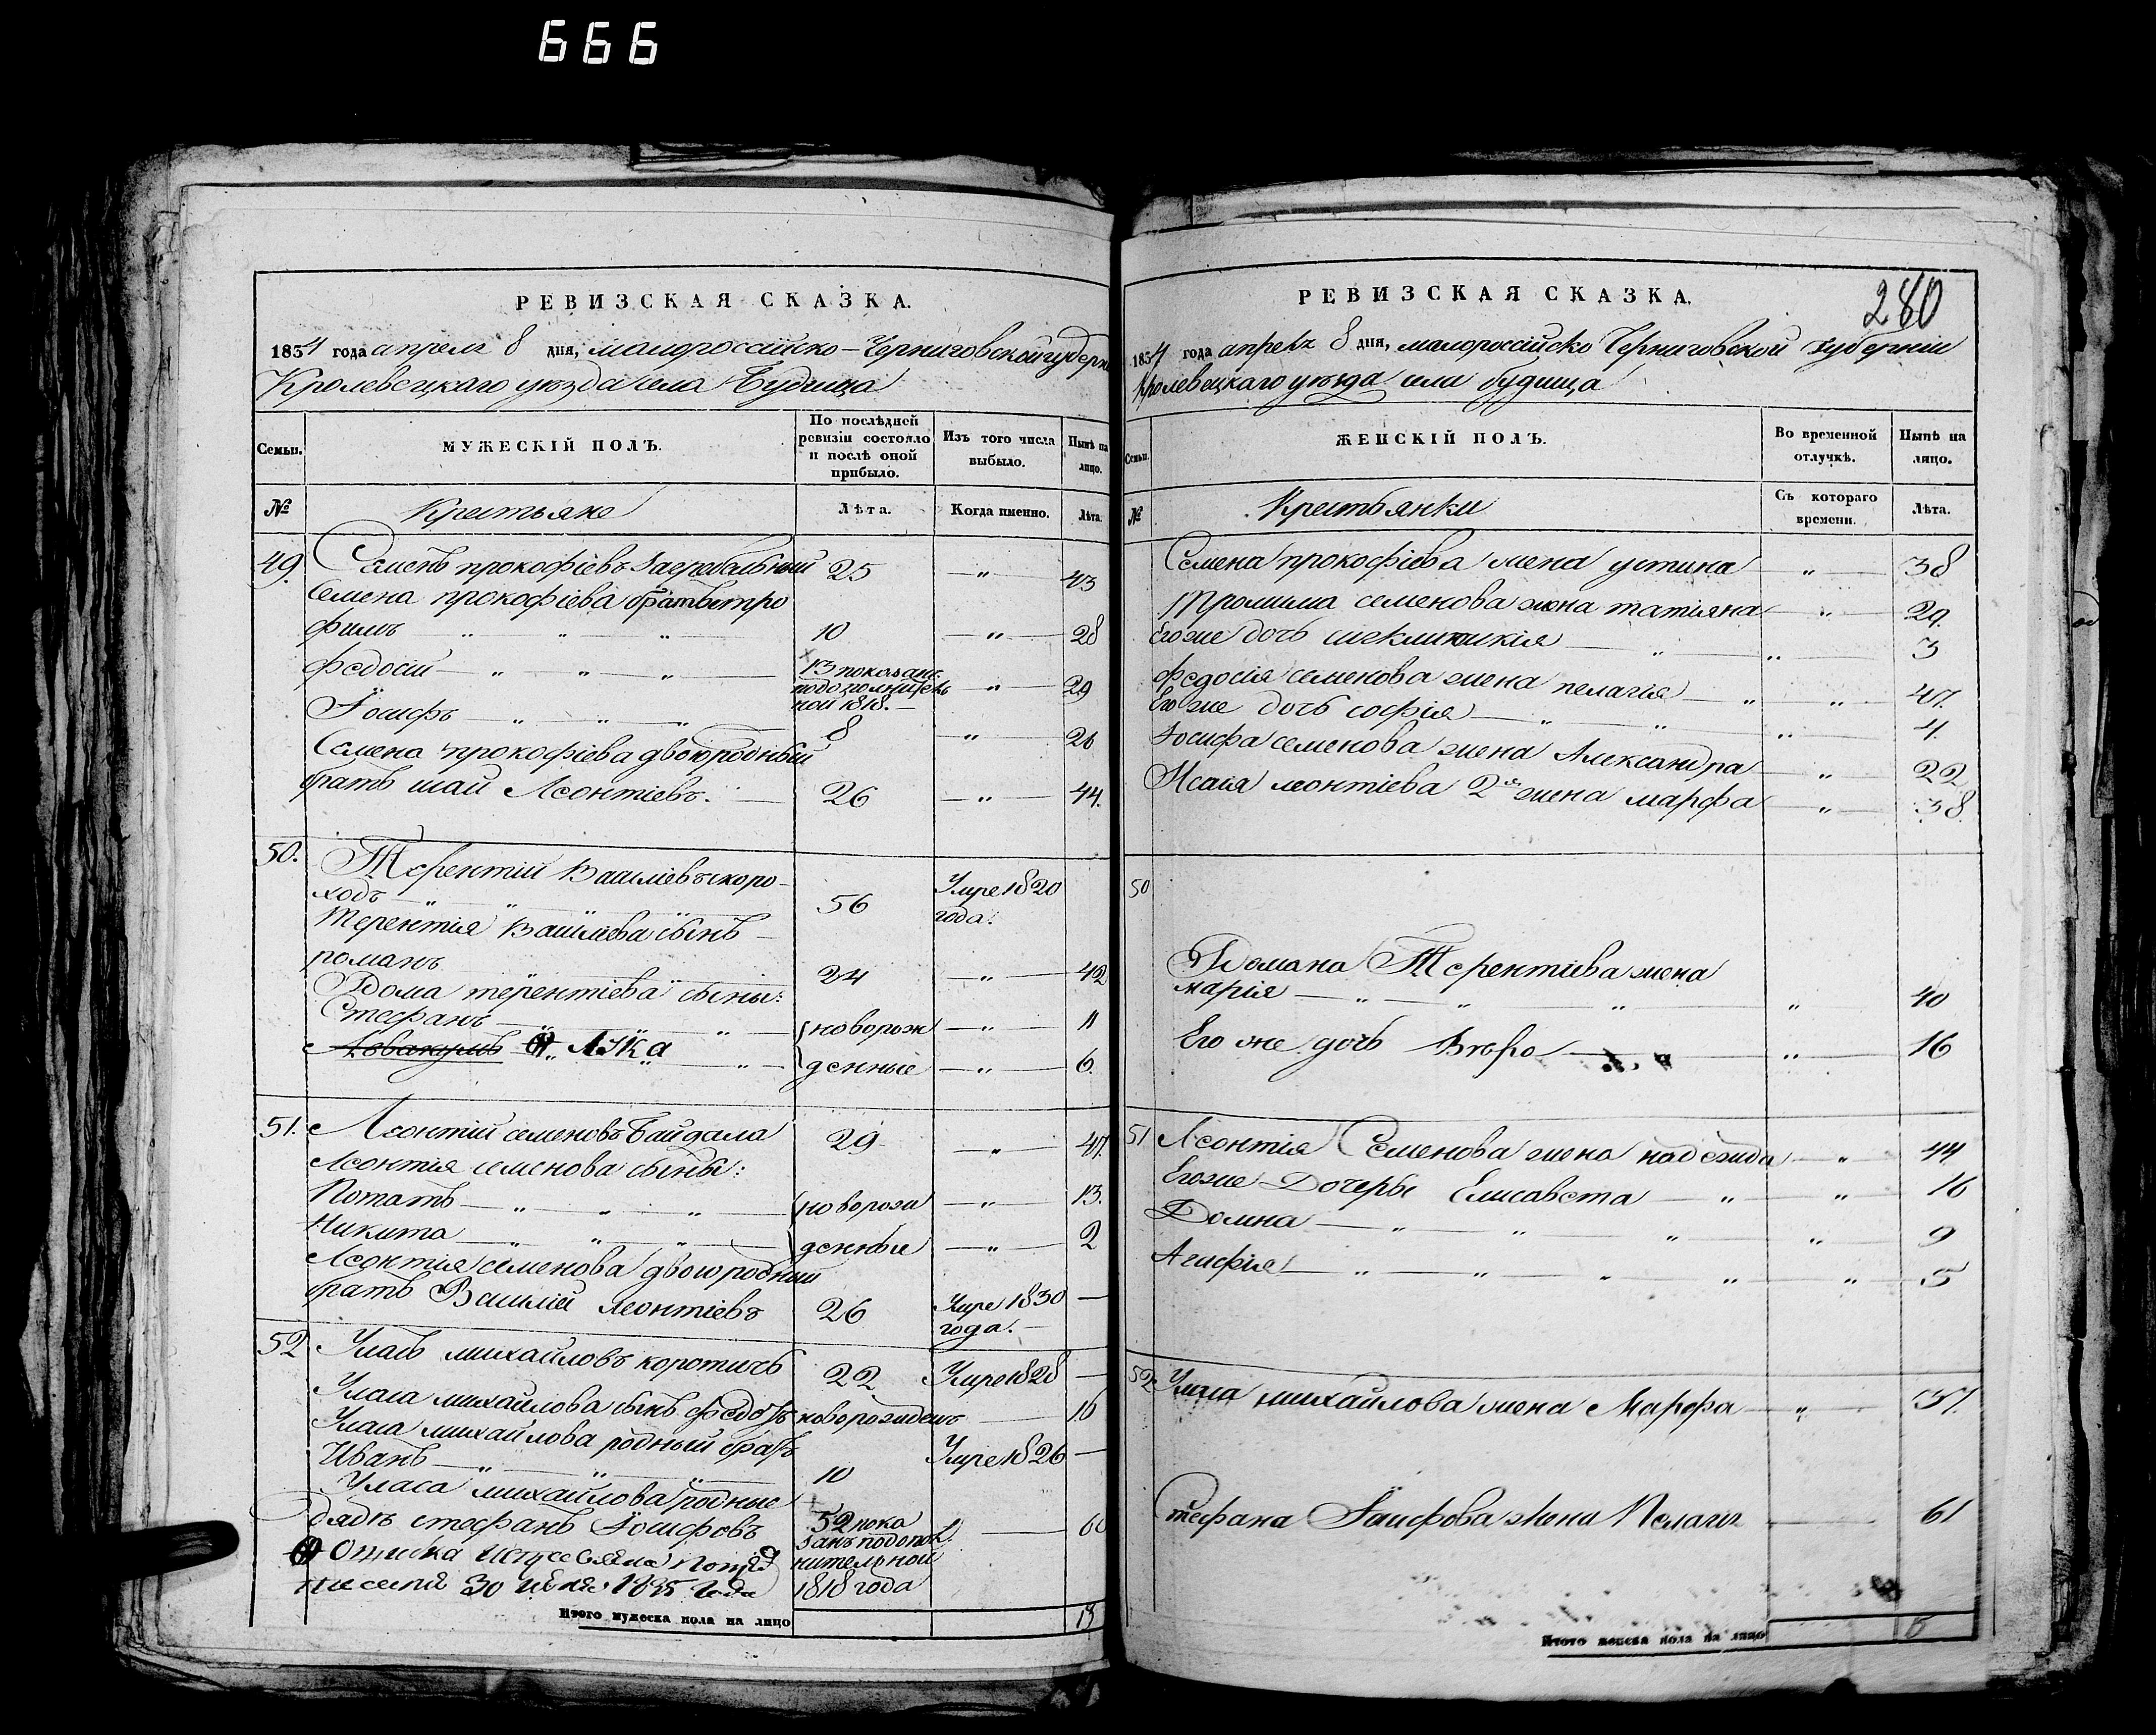 666
РЕВИЗСКАЯ СКАЗКА.
1834 года апреля 8 дня, малороссийско-Черниговской губерн
Кролевецкаго уезда села Будища
Семьи.
МУЖЕСКІЙ ПОЛЪ.
По послѣдней ревизіи состояло и послѣ оной прибыло.
Изъ того числа выбыло.
Нынѣ на лицо.
№
Крестьяне
Лѣта.
Когда именно.
Лѣта.
49. Семенъ прокофіевъ 25 — „ — 43
Семена прокофіева братья тро
фимъ „ „ „ 10 — „ — 28
федосій — „ „ „ — 13 показанъ
подополнитель — „ — 29
ной 1818. —
Іосифъ „ „ „ 8 — „ — 26
Семена прокофіева двоюродный
братъ исай Леонтіевъ. — 26 — „ — 44.
50. Терентій Василіевъ скоро-
ходъ „ „ „ 56 Умре 1820
года.
Терентія Василіева сынъ —
романъ 24 — „ — 42
Рома терентіева сыны:
Стефанъ — „ „ „ новорож — „ — 11
Аввакумъ Лука „ „ денные — „ — 6.
51. Леонтій семеновъ Байдала 29 — „ — 47
Леонтія семенова сыны:
Потапъ — „ „ „ новорож — „ — 13.
Никита — „ „ „ денные — „ — 2
Леонтія семенова двоюродный
братъ Василій леонтіевъ 26 Умре 1830 —
года. —
52 Уласъ михайловъ коротичъ 22 Умре 1828 —
Уласа михайлова сынъ федоръ новорожденъ — 16
Уласа михайлова родный братъ
Иванъ — „ „ „ 10 Умре 1826 —
Уласа михайлова родные
дядя стефанъ Іосифовъ 52 пока
занъ подопол
нительной
1818 года — 60
30 1835 года
Итого мужеска пола на лицо 15
280
РЕВИЗСКАЯ СКАЗКА.
1834 года апреля 8 дня, малороссийско Черниговской губерніи
Кролевецкаго уезда села будища
Семьи.
ЖЕНСКІЙ ПОЛЪ.
Во временной отлучкѣ.
Нынѣ на лицо.
№
Крестьянки
Съ котораго времени.
Лѣта.
Семена прокофіева жена устина — „ — 38
Трофима семенова жена татіяна — „ — 29.
Егоже дочь — „ „ — 3
федосія семенова жена пелагія — „ „ — 47.
Егоже дочь софія — „ „ „ — 4.
Іосифа семенова жена Александра — „ — 22
Исаія леонтіева 2я жена марфа — „ — 38.
50
Романа Терентіева жена
марія — „ „ „ „ — 40
Его же дочь — „ — 16
51 Леонтія Семенова жена надежда — „ — 44
Егоже Дочерьи Елисавета — „ „ — 16
Домна — „ „ „ „ — 9
Агафія — „ „ „ „ „ — 5
52 Уласа михайлова жена Марфа — „ — 37.
Стефана Іосифова жена Пелагія — 61
Итого женска пола на лицо 15